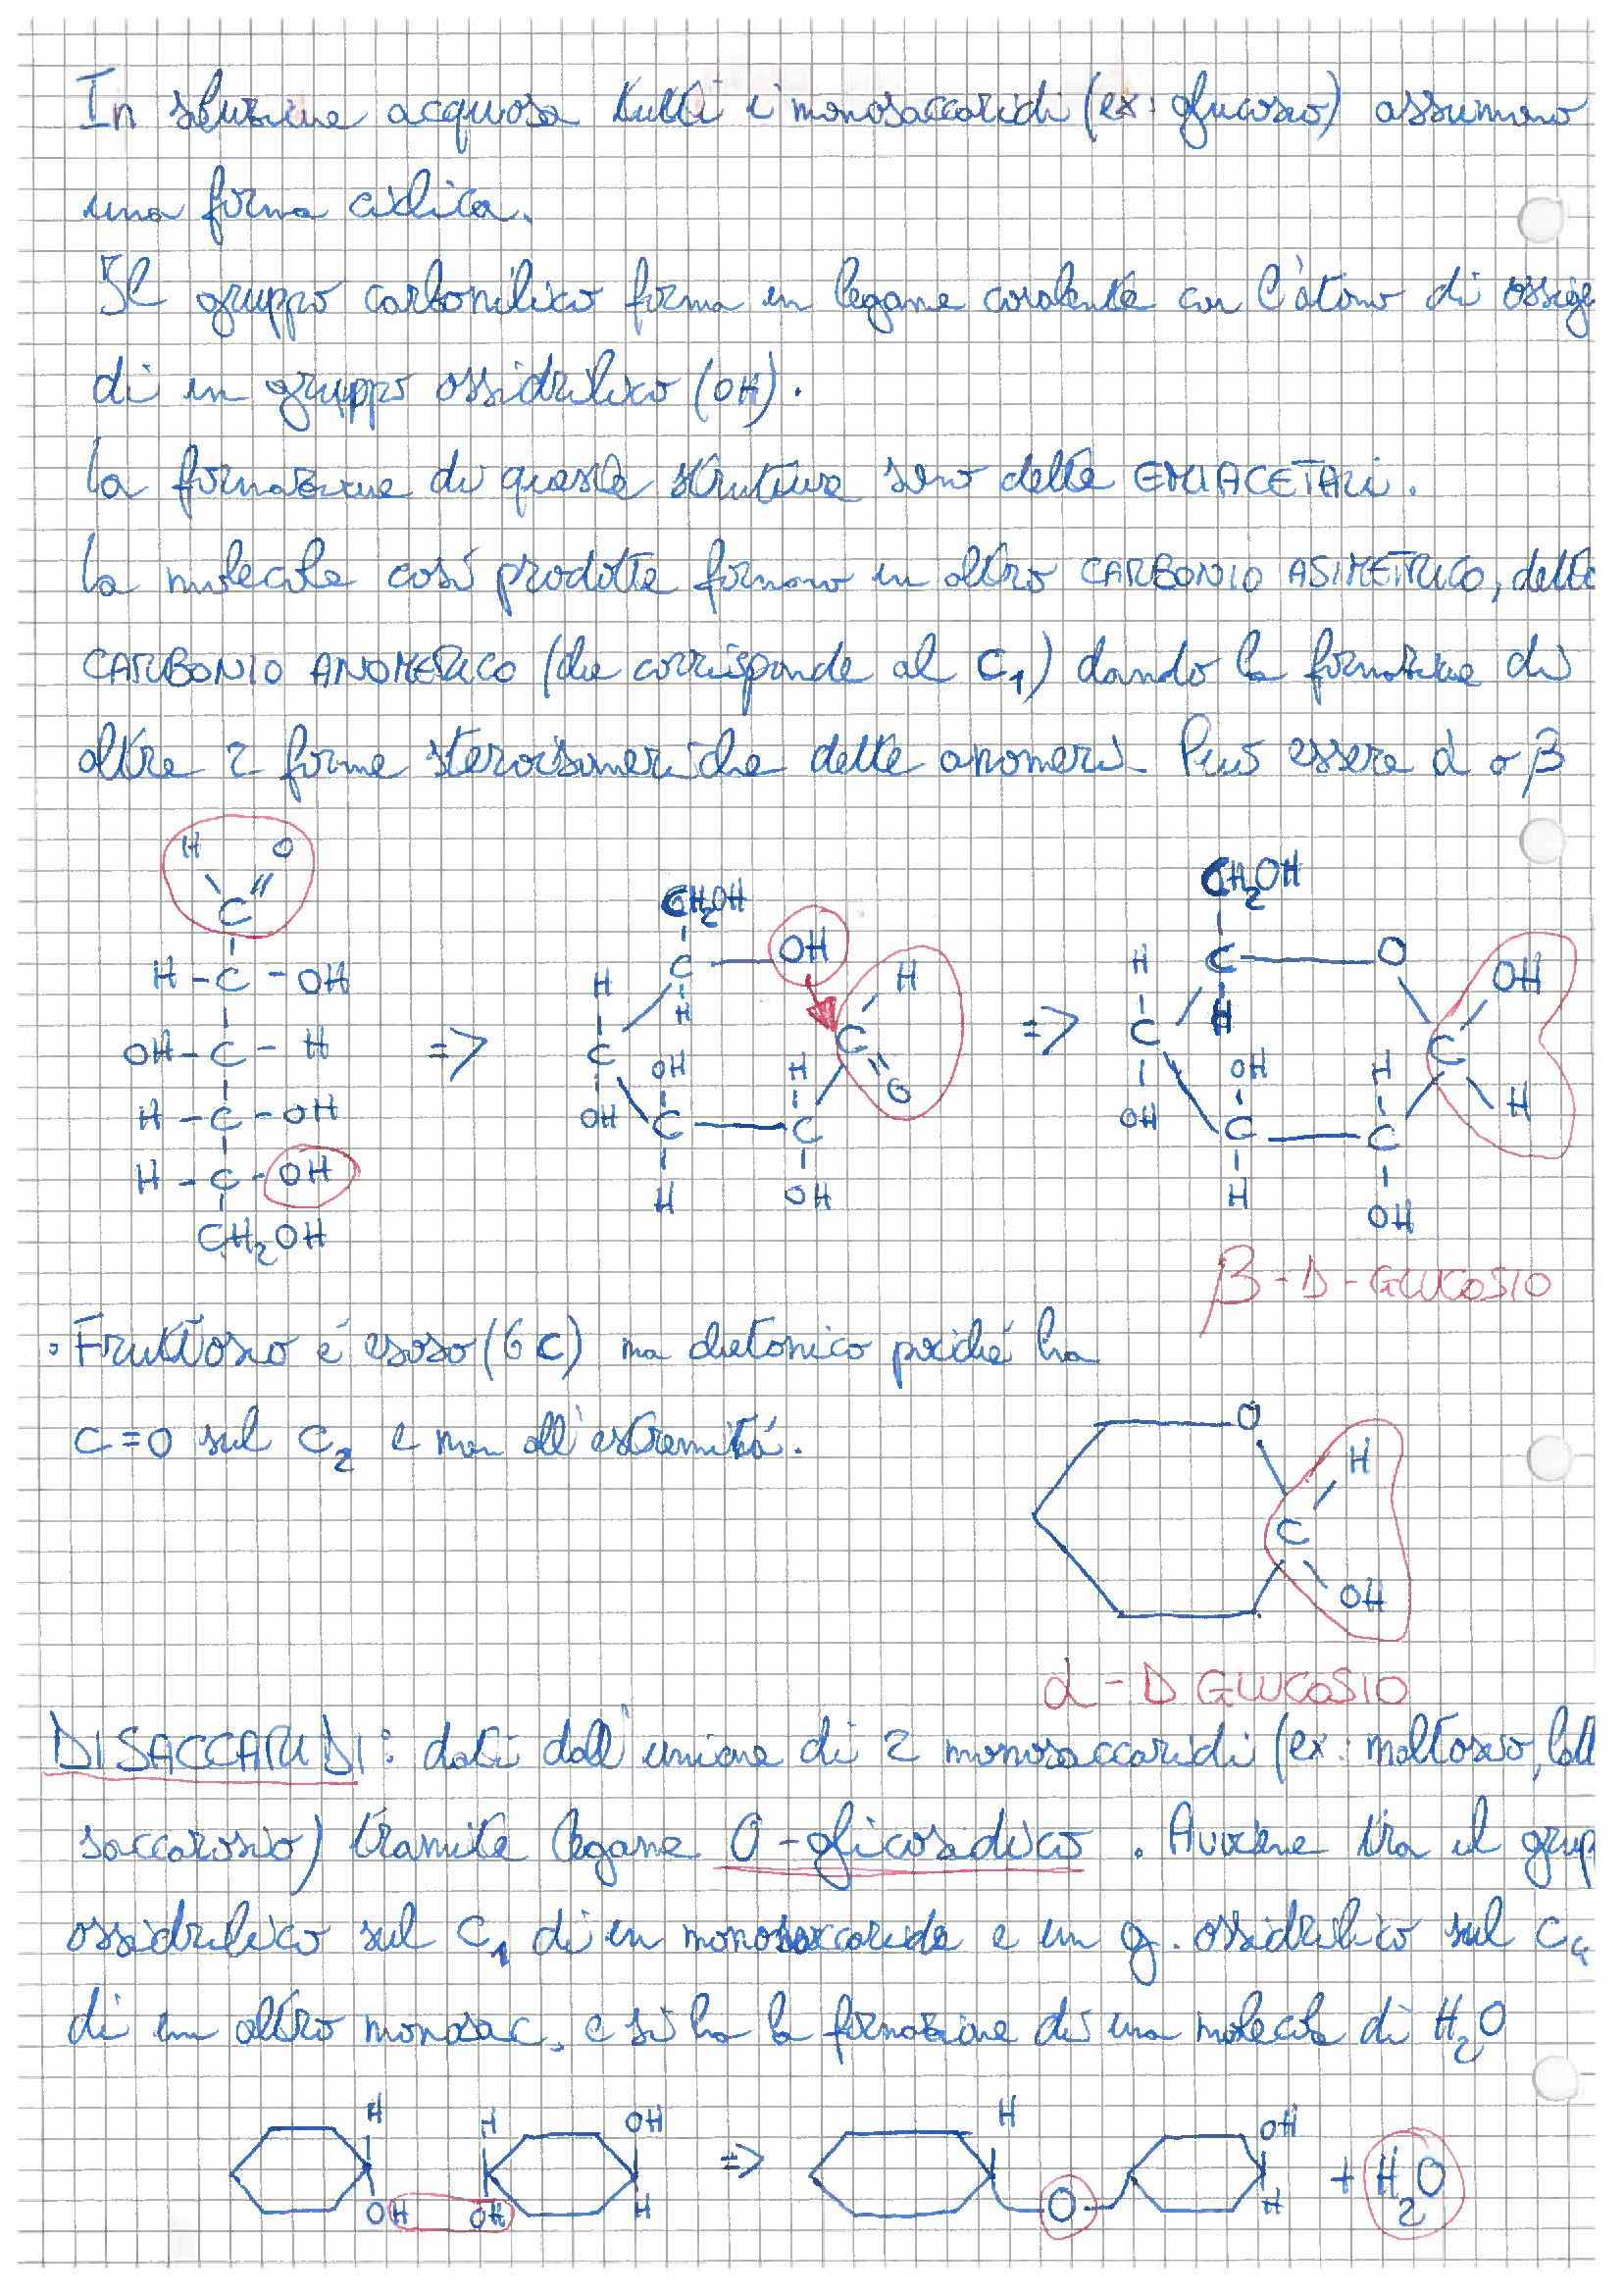 In soluzione acquosa tutti i monosaccaridi (ex: glucosio) assumono
una forma ciclica.
Il gruppo carbonilico forma un legame covalente con l'atomo di ossige
di un gruppo ossidrilico (OH).
la formazione di queste strutture sono dette EMIACETALI.
la molecola così prodotta formano un altro CARBONIO ASIMETRICO, detto
CARBONIO ANOMERICO (che corrisponde al C1) dando la formazione di
altre 2 forme steroisomeriche dette anomeri. Può essere α o β
H O
C
H - C - OH
OH - C - H
H - C - OH
H - C - OH
CH2OH
=>
CH2OH
C OH
H H
C H
OH OH H C O
C C
H OH
=>
CH2OH
C O
H H OH
C C
OH OH H H
C C
H OH
β-D-GLUCOSIO
• Fruttosio è esoso (6C) ma chetonico poiché ha
C=O sul C2 e non all'estremità.
O
H
C
OH
α-D GLUCOSIO
DISACCARIDI: dati dall'unione di 2 monosaccaridi (ex: maltosio, latt
saccarosio) tramite legame O-glicosidico. Avviene tra il grup
ossidrilico sul C1 di un monosaccaride e un g. ossidrilico sul C4
di un altro monosac, e si ha la formazione di una molecola di H2O
H H OH => H OH
OH OH H O H + H2O